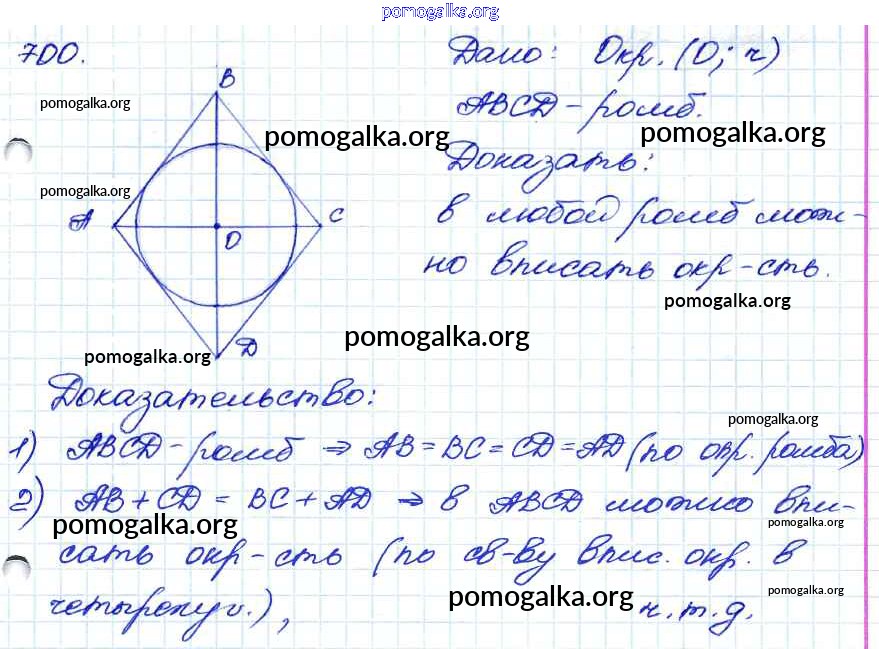 pomogalka.org
700. Дано: Окр. (O; r)
B
pomogalka.org
ABCD - ромб.
pomogalka.org pomogalka.org
Доказать:
pomogalka.org
A C
в любой ромб мож-
O
но вписать окр-сть.
pomogalka.org
pomogalka.org
D
pomogalka.org
Доказательство:
pomogalka.org
1) ABCD - ромб ⇒ AB = BC = CD = AD (по опр. ромба)
2) AB + CD = BC + AD ⇒ в ABCD можно впи-
pomogalka.org pomogalka.org
сать окр-сть (по св-ву впис. окр. в
pomogalka.org pomogalka.org
четырехуг.), ч.т.д.